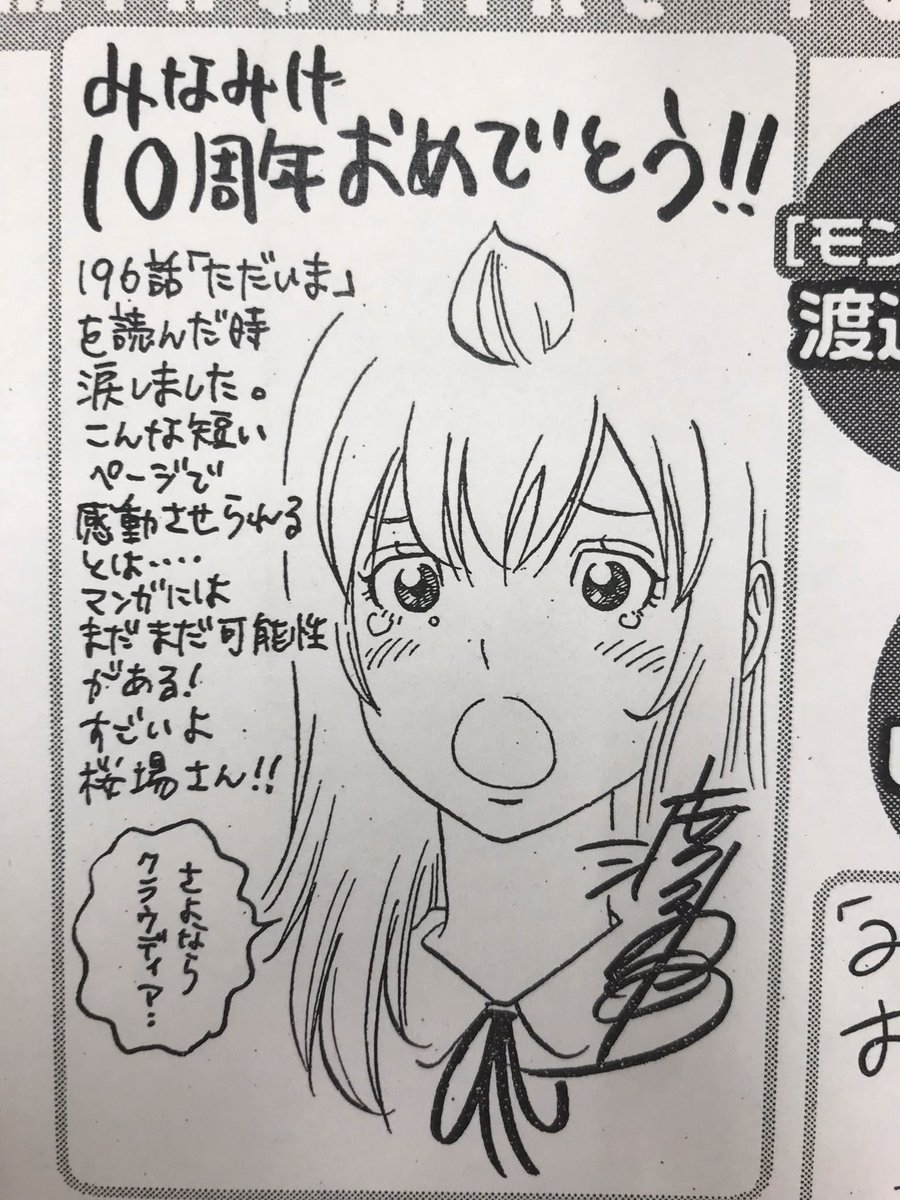 みなみけ
10周年おめでとう!!
196話「ただいま」
を読んだ時
涙しました。
こんな短い
ページで
感動させられる
とは‥‥
マンガには
まだまだ可能性
がある!
すごいよ
桜場さん!!
さよなら
クラウディア…
[モン
渡辺
「み
お